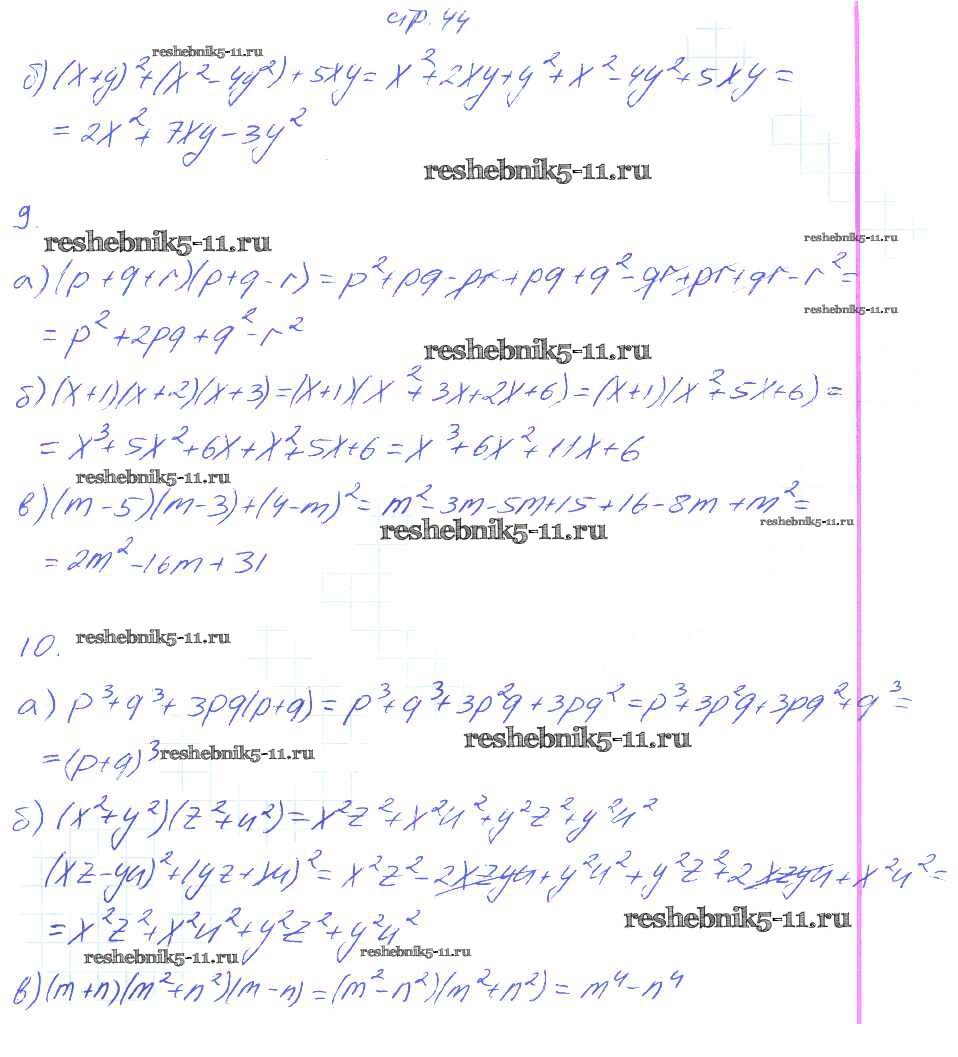 стр. 44
reshebnik5-11.ru
б) (x+y)²+(x²-4y²)+5xy = x²+2xy+y²+x²-4y²+5xy =
= 2x²+7xy-3y²
reshebnik5-11.ru
9.
reshebnik5-11.ru
reshebnik5-11.ru
а) (p+q+r)(p+q-r) = p²+pq-pr+pq+q²-qr+pr+qr-r² =
reshebnik5-11.ru
= p²+2pq+q²-r²
reshebnik5-11.ru
б) (x+1)(x+2)(x+3)=(x+1)(x²+3x+2x+6)=(x+1)(x²+5x+6)=
= x³+5x²+6x+x²+5x+6 = x³+6x²+11x+6
reshebnik5-11.ru
в) (m-5)(m-3)+(4-m)² = m²-3m-5m+15+16-8m+m² =
reshebnik5-11.ru
reshebnik5-11.ru
= 2m²-16m+31
10.
reshebnik5-11.ru
а) p³+q³+3pq(p+q) = p³+q³+3p²q+3pq² = p³+3p²q+3pq²+q³ =
reshebnik5-11.ru
= (p+q)³
reshebnik5-11.ru
б) (x²+y²)(z²+u²) = x²z²+x²u²+y²z²+y²u²
(xz-yu)²+(yz+xu)² = x²z²-2xzyu+y²u²+y²z²+2xzyu+x²u² =
= x²z²+x²u²+y²z²+y²u²
reshebnik5-11.ru
reshebnik5-11.ru
reshebnik5-11.ru
в) (m+n)(m²+n²)(m-n) = (m²-n²)(m²+n²) = m⁴-n⁴